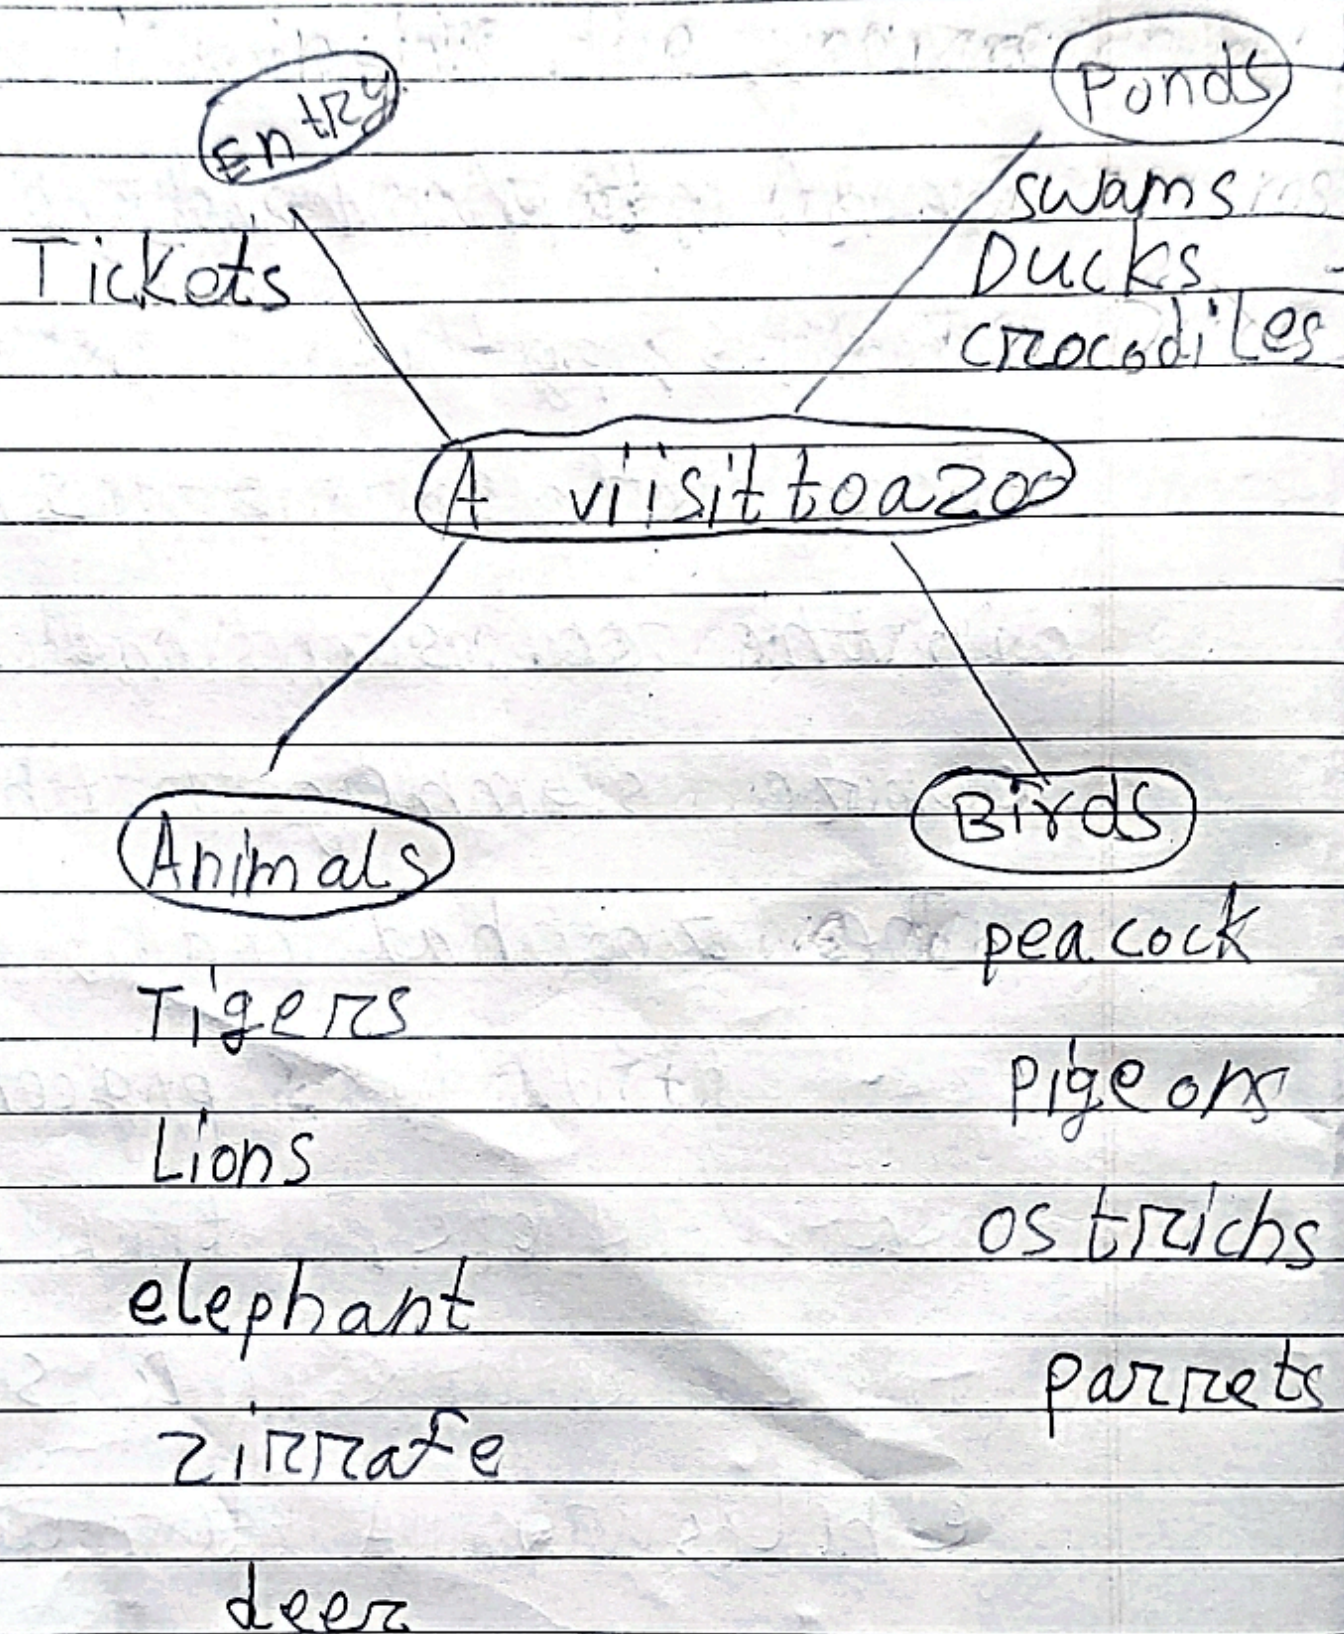 Entry
Tickets
Ponds
swams
Ducks
crocodiles
A viisit to a zoo
Animals
Tigers
Lions
elephant
zirrafe
deer
Birds
peacock
pigeons
ostrichs
parrets